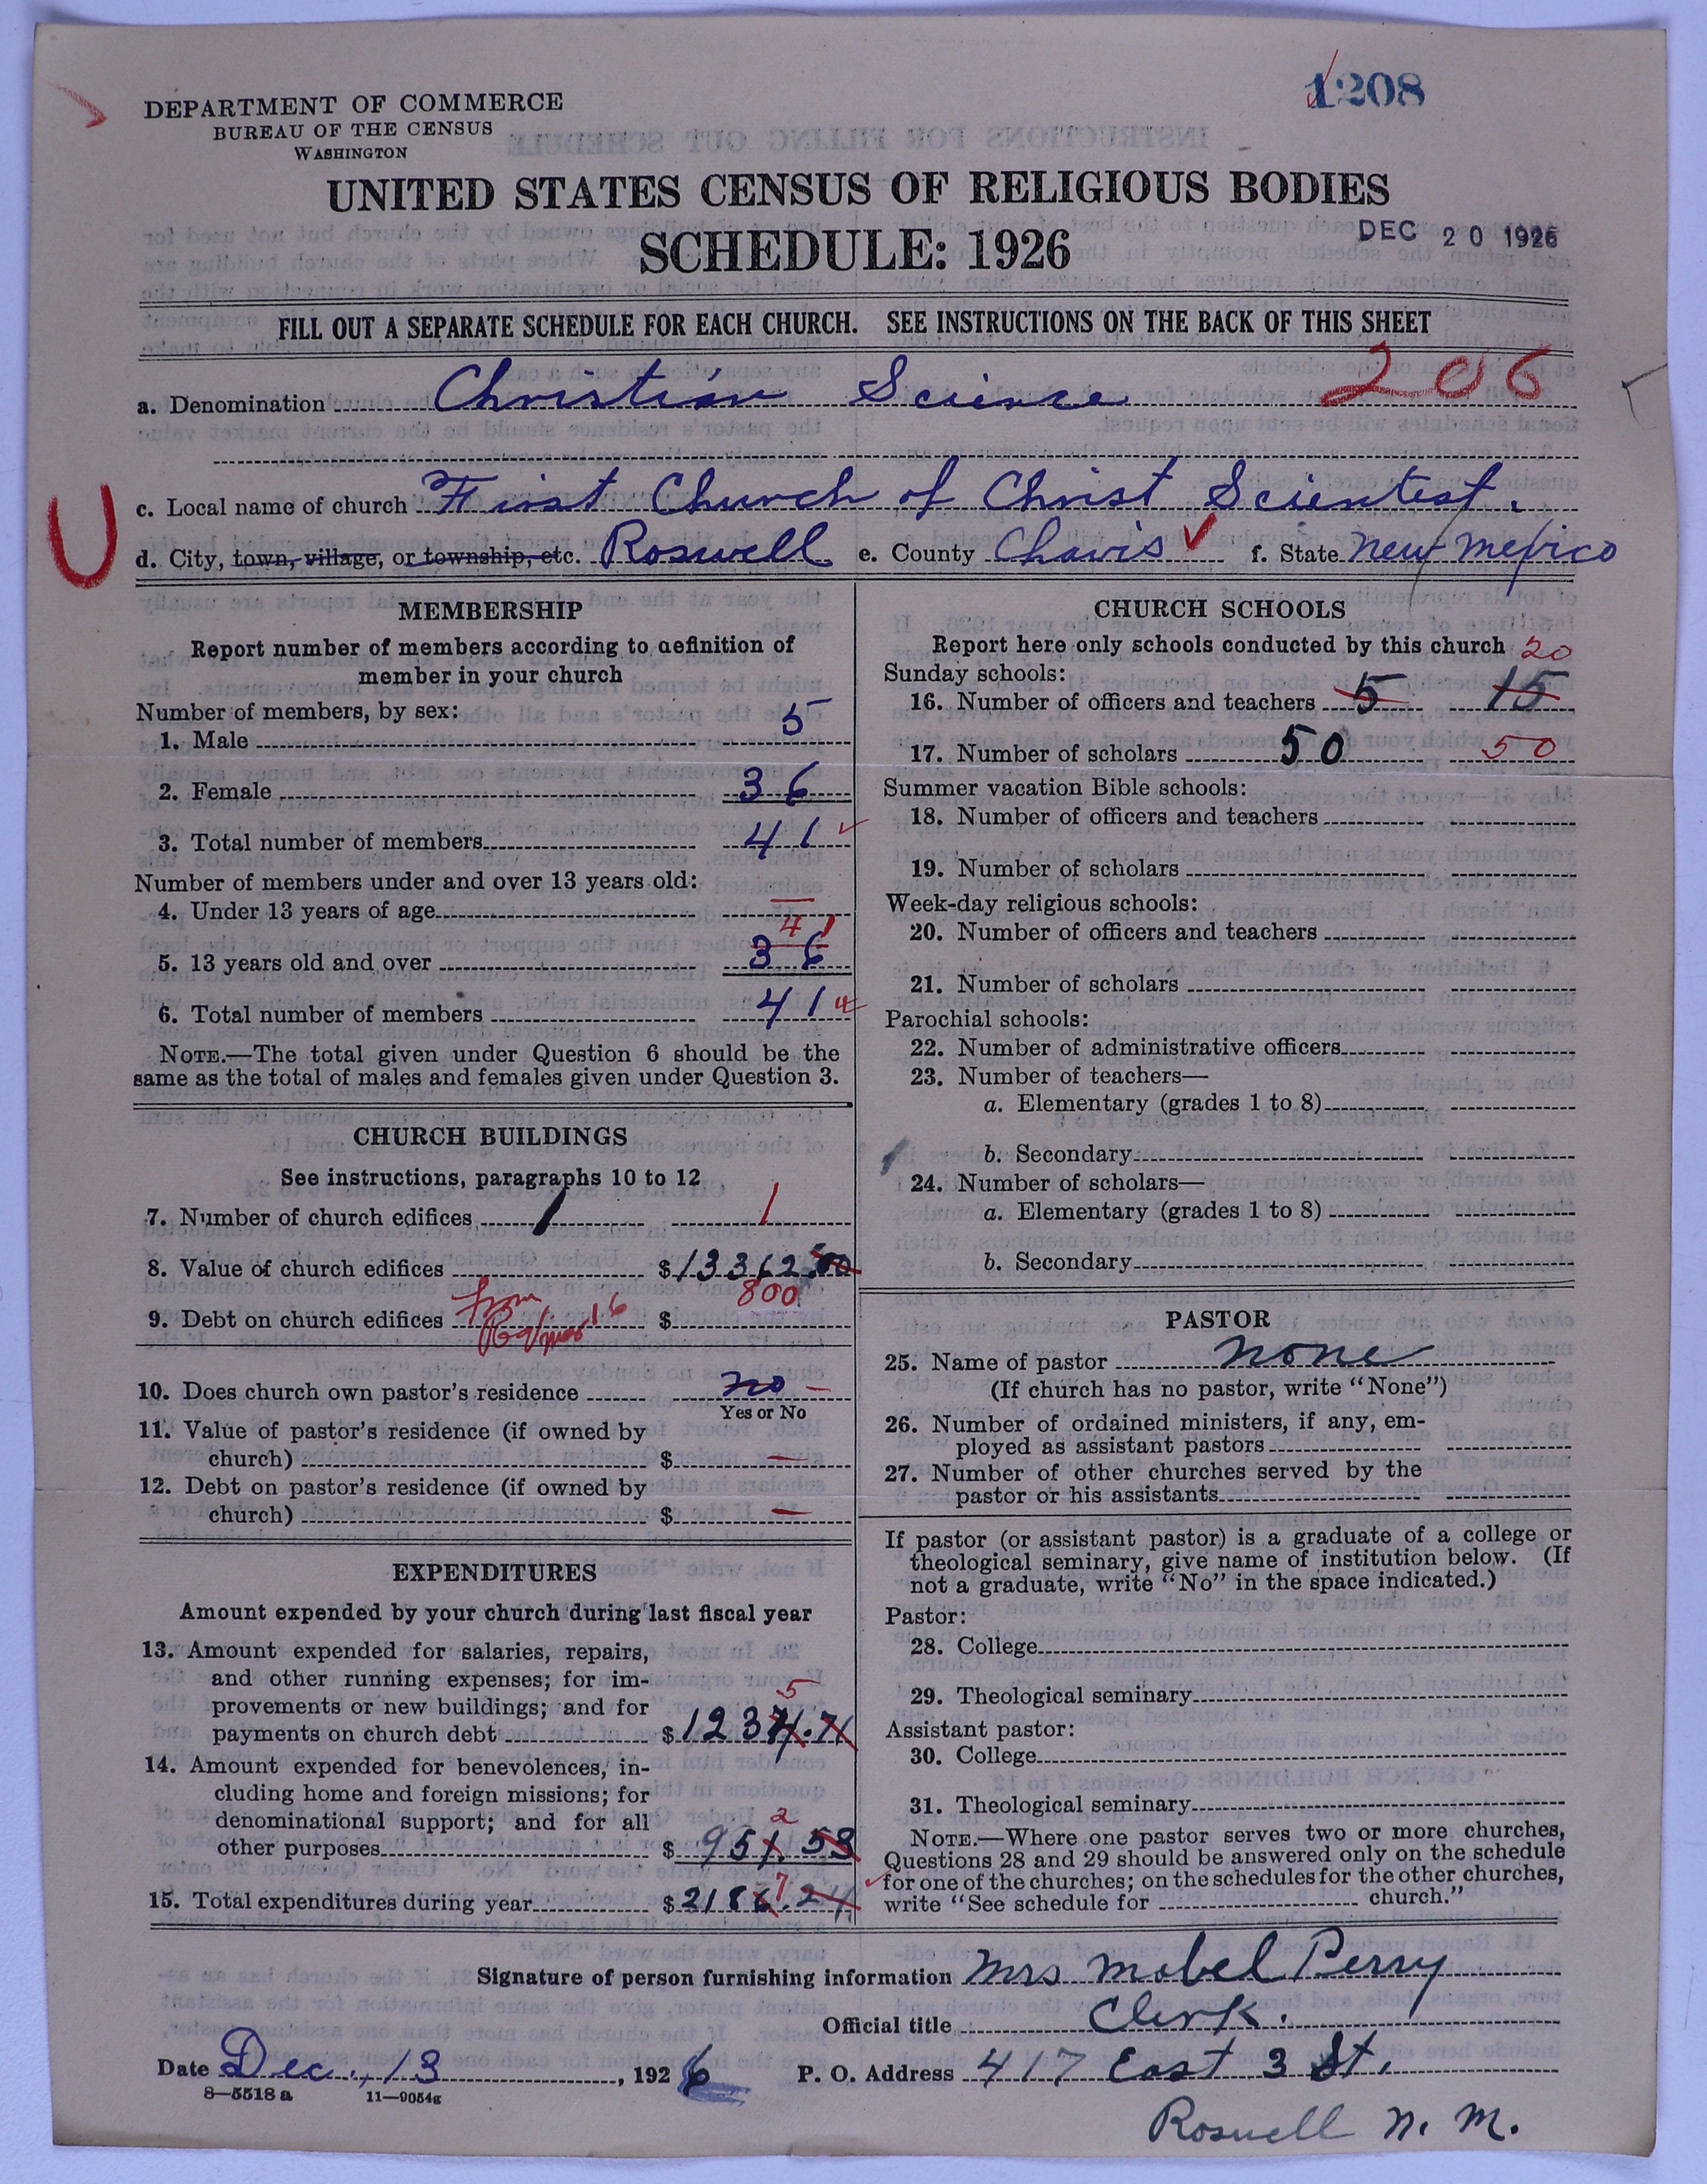 1208
DEPARTMENT OF COMMERCE
BUREAU OF THE CENSUS
WASHINGTON
UNITED STATES CENSUS OF RELIGIOUS BODIES
SCHEDULE: 1926
DEC 20 1926
FILL OUT A SEPARATE SCHEDULE FOR EACH CHURCH. SEE INSTRUCTIONS ON THE BACK OF THIS SHEET
a. Denomination Christian Science 206
c. Local name of church First Church of Christ Scientest.
U
d. City, town, village, or township, etc. Roswell e. County Chavis f. State New Mexico
MEMBERSHIP
Report number of members according to definition of
member in your church
Number of members, by sex:
1. Male 5
2. Female 36
3. Total number of members 41
Number of members under and over 13 years old:
4. Under 13 years of age —
41
5. 13 years old and over 36
6. Total number of members 41
NOTE.—The total given under Question 6 should be the
same as the total of males and females given under Question 3.
CHURCH BUILDINGS
See instructions, paragraphs 10 to 12
7. Number of church edifices 1 1
8. Value of church edifices $13362.00
800
9. Debt on church edifices From 16 $
10. Does church own pastor's residence No —
Yes or No
11. Value of pastor's residence (if owned by
church) $ —
12. Debt on pastor's residence (if owned by
church) $ —
EXPENDITURES
Amount expended by your church during last fiscal year
13. Amount expended for salaries, repairs,
and other running expenses; for im-
provements or new buildings; and for
5
payments on church debt $1234.71
14. Amount expended for benevolences, in-
cluding home and foreign missions; for
denominational support; and for all
2
other purposes $951.53
7
15. Total expenditures during year $2186.24
CHURCH SCHOOLS
Report here only schools conducted by this church 20
Sunday schools:
16. Number of officers and teachers 5 15
17. Number of scholars 50 50
Summer vacation Bible schools:
18. Number of officers and teachers
19. Number of scholars
Week-day religious schools:
20. Number of officers and teachers
21. Number of scholars
Parochial schools:
22. Number of administrative officers
23. Number of teachers—
a. Elementary (grades 1 to 8)
b. Secondary
24. Number of scholars—
a. Elementary (grades 1 to 8)
b. Secondary
PASTOR
25. Name of pastor None
(If church has no pastor, write "None")
26. Number of ordained ministers, if any, em-
ployed as assistant pastors
27. Number of other churches served by the
pastor or his assistants
If pastor (or assistant pastor) is a graduate of a college or
theological seminary, give name of institution below. (If
not a graduate, write "No" in the space indicated.)
Pastor:
28. College
29. Theological seminary
Assistant pastor:
30. College
31. Theological seminary
NOTE.—Where one pastor serves two or more churches,
Questions 28 and 29 should be answered only on the schedule
for one of the churches; on the schedules for the other churches,
write "See schedule for church."
Signature of person furnishing information Mrs Mabel Perry
Official title Clerk.
Date Dec., 13, 1926 P. O. Address 417 East 3 St.
8—5518a 11—9054g
Roswell N. M.